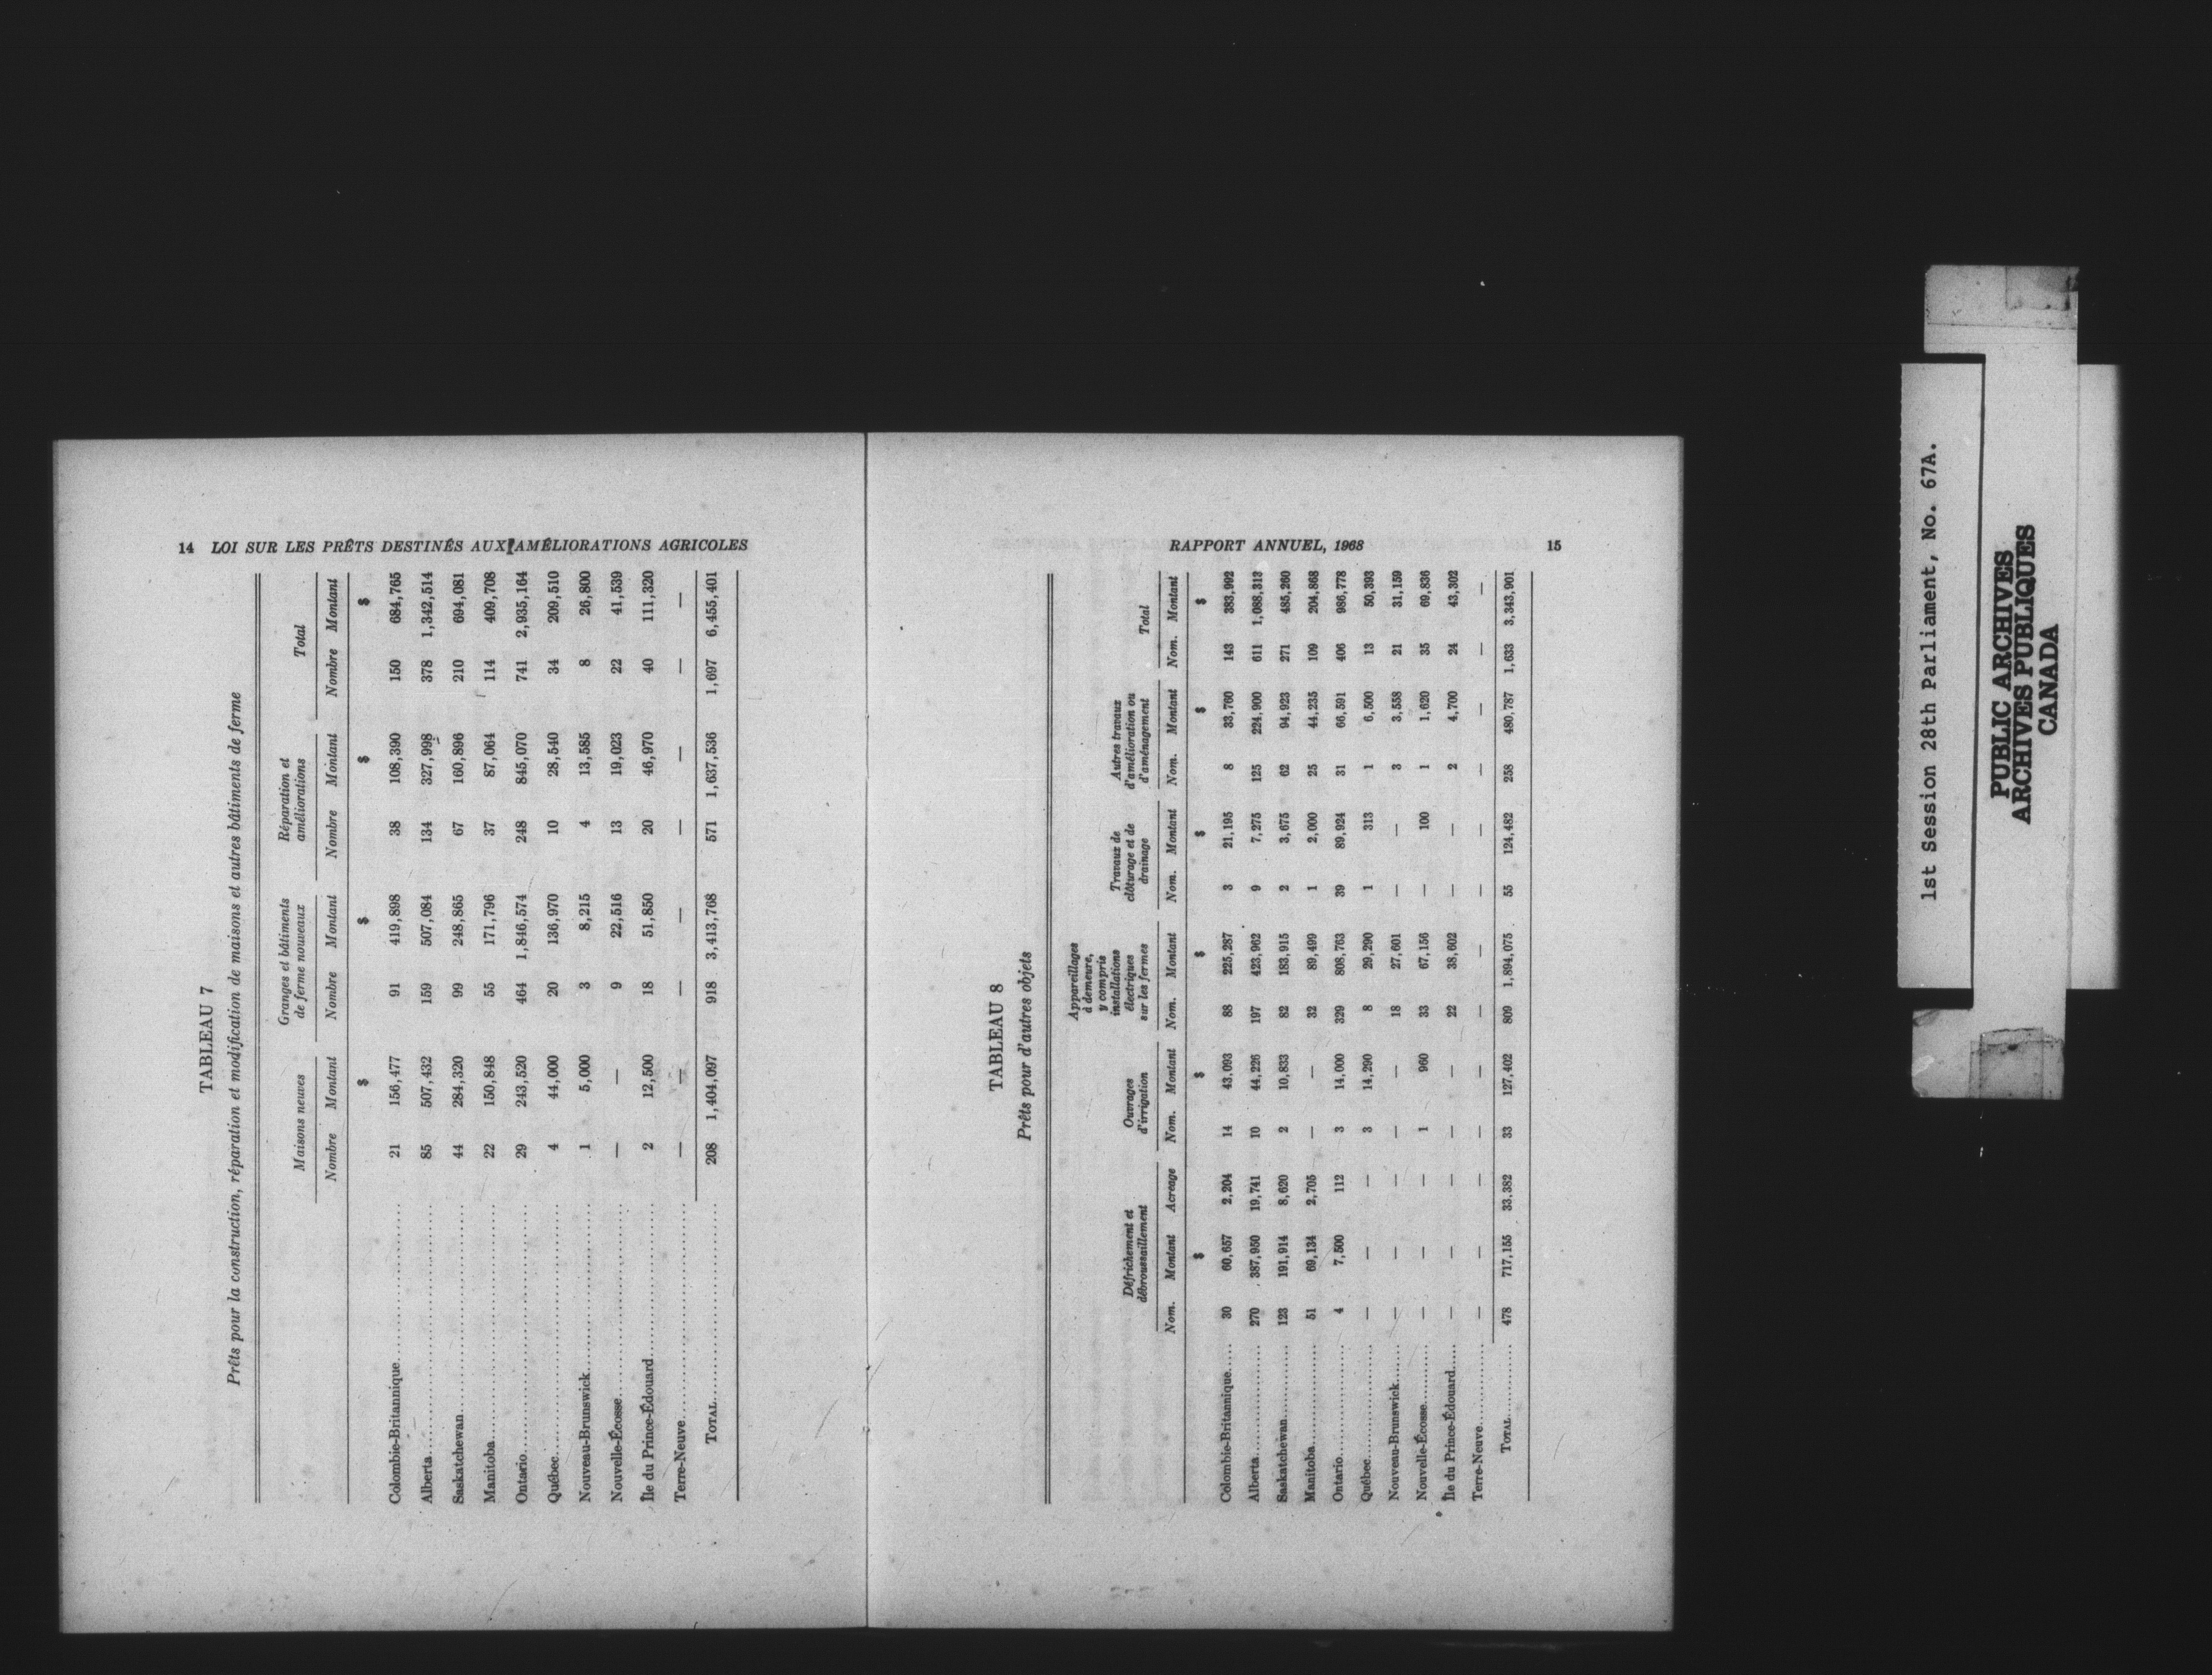 14 LOI SUR LES PRÊTS DESTINÉS AUX AMÉLIORATIONS AGRICOLES
TABLEAU 7
Prêts pour la construction, réparation et modification de maisons et autres bâtiments de ferme
Maisons neuves Granges et bâtiments de ferme nouveaux Réparation et améliorations Total
Nombre Montant Nombre Montant Nombre Montant Nombre Montant
$ $ $ $
Colombie-Britannique 21 156,477 91 419,898 38 108,390 150 684,765
Alberta 85 507,432 159 507,084 134 327,998 378 1,342,514
Saskatchewan 44 284,320 99 248,865 67 160,896 210 694,081
Manitoba 22 150,848 55 171,796 37 87,064 114 409,708
Ontario 29 243,520 464 1,846,574 248 845,070 741 2,935,164
Québec 4 44,000 20 136,970 10 28,540 34 209,510
Nouveau-Brunswick 1 5,000 3 8,215 4 13,585 8 26,800
Nouvelle-Écosse — — 9 22,516 13 19,023 22 41,539
Île du Prince-Édouard 2 12,500 18 51,850 20 46,970 40 111,320
Terre-Neuve — — — — — — — —
TOTAL 208 1,404,097 918 3,413,768 571 1,637,536 1,697 6,455,401
RAPPORT ANNUEL, 1968 15
TABLEAU 8
Prêts pour d'autres objets
Défrichement et débroussaillement Ouvrages d'irrigation Appareillages à demeure, y compris installations électriques sur les fermes Travaux de clôturage et de drainage Autres travaux d'amélioration ou d'aménagement Total
Nom. Montant Acreage Nom. Montant Nom. Montant Nom. Montant Nom. Montant Nom. Montant
$ $ $ $ $ $
Colombie-Britannique 30 60,657 2,204 14 43,093 88 225,287 3 21,195 8 33,760 143 383,992
Alberta 270 387,950 19,741 10 44,226 197 423,962 9 7,275 125 224,900 611 1,088,313
Saskatchewan 123 191,914 8,620 2 10,833 82 183,915 2 3,675 62 94,923 271 485,260
Manitoba 51 69,134 2,705 — — 32 89,499 1 2,000 25 44,235 109 204,868
Ontario 4 7,500 112 3 14,000 329 808,763 39 89,924 31 66,591 406 986,778
Québec — — — 3 14,290 8 29,290 1 313 1 6,500 13 50,393
Nouveau-Brunswick — — — — — 18 27,601 — — 3 3,558 21 31,159
Nouvelle-Écosse — — — 1 960 33 67,156 — 100 1 1,620 35 69,836
Île du Prince-Édouard — — — — — 22 38,602 — — 2 4,700 24 43,302
Terre-Neuve — — — — — — — — — — — — —
TOTAL 478 717,155 33,382 33 127,402 809 1,894,075 55 124,482 258 480,787 1,633 3,343,901
1st Session 28th Parliament, No. 67A.
PUBLIC ARCHIVES
ARCHIVES PUBLIQUES
CANADA